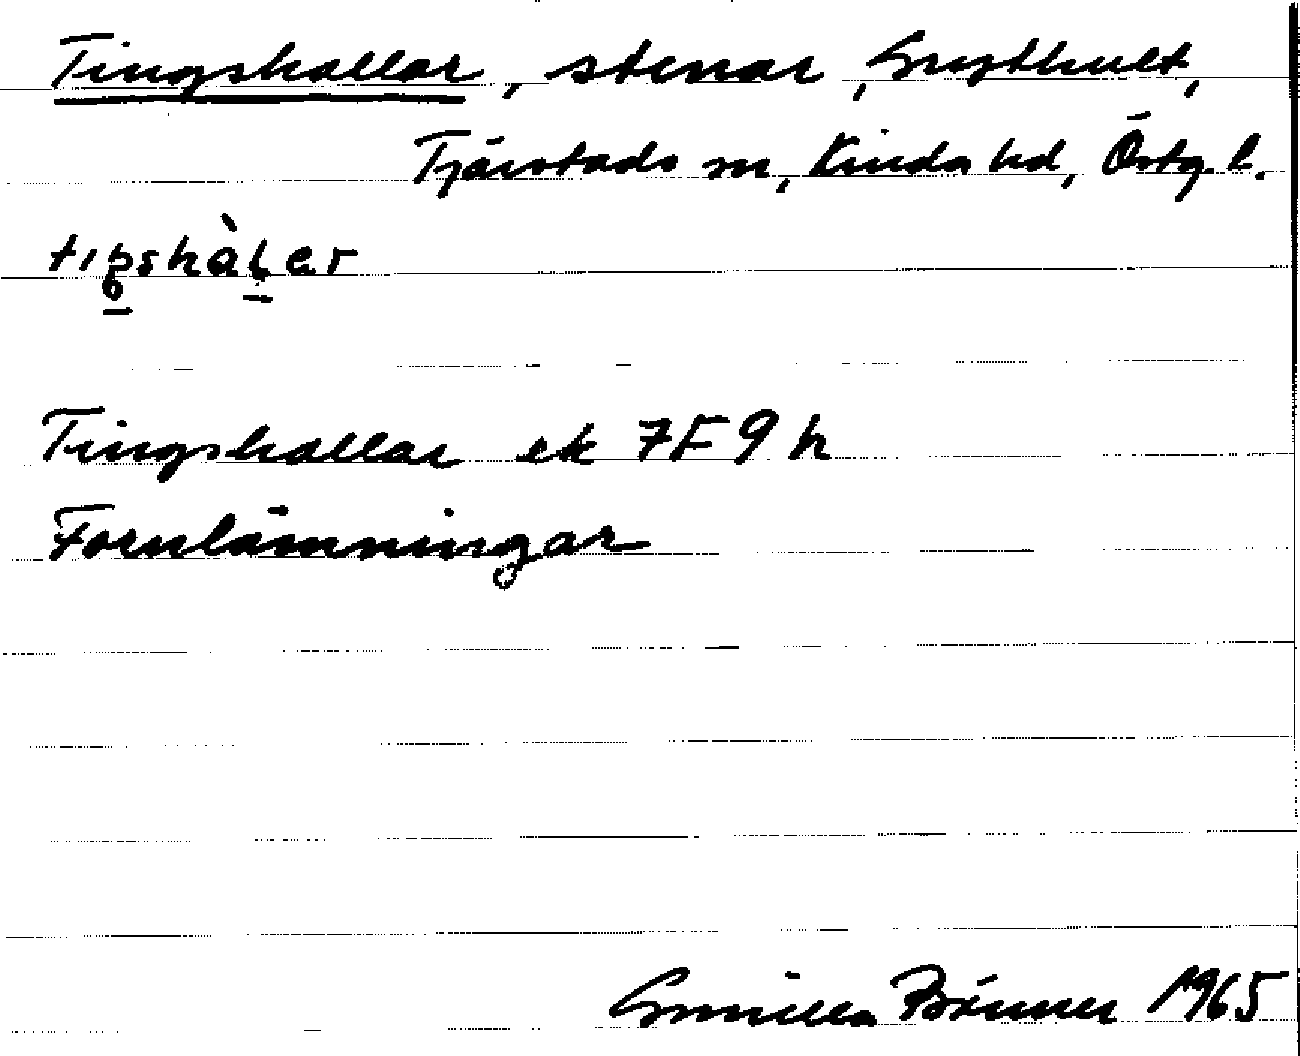 Tingshallar, stenar, Grythult,
Tjärstads sn, Kinda hd, Östg. l.
Tingshallar ek 7F 9 h
Fornlämningar
Gunilla Bönner 1965